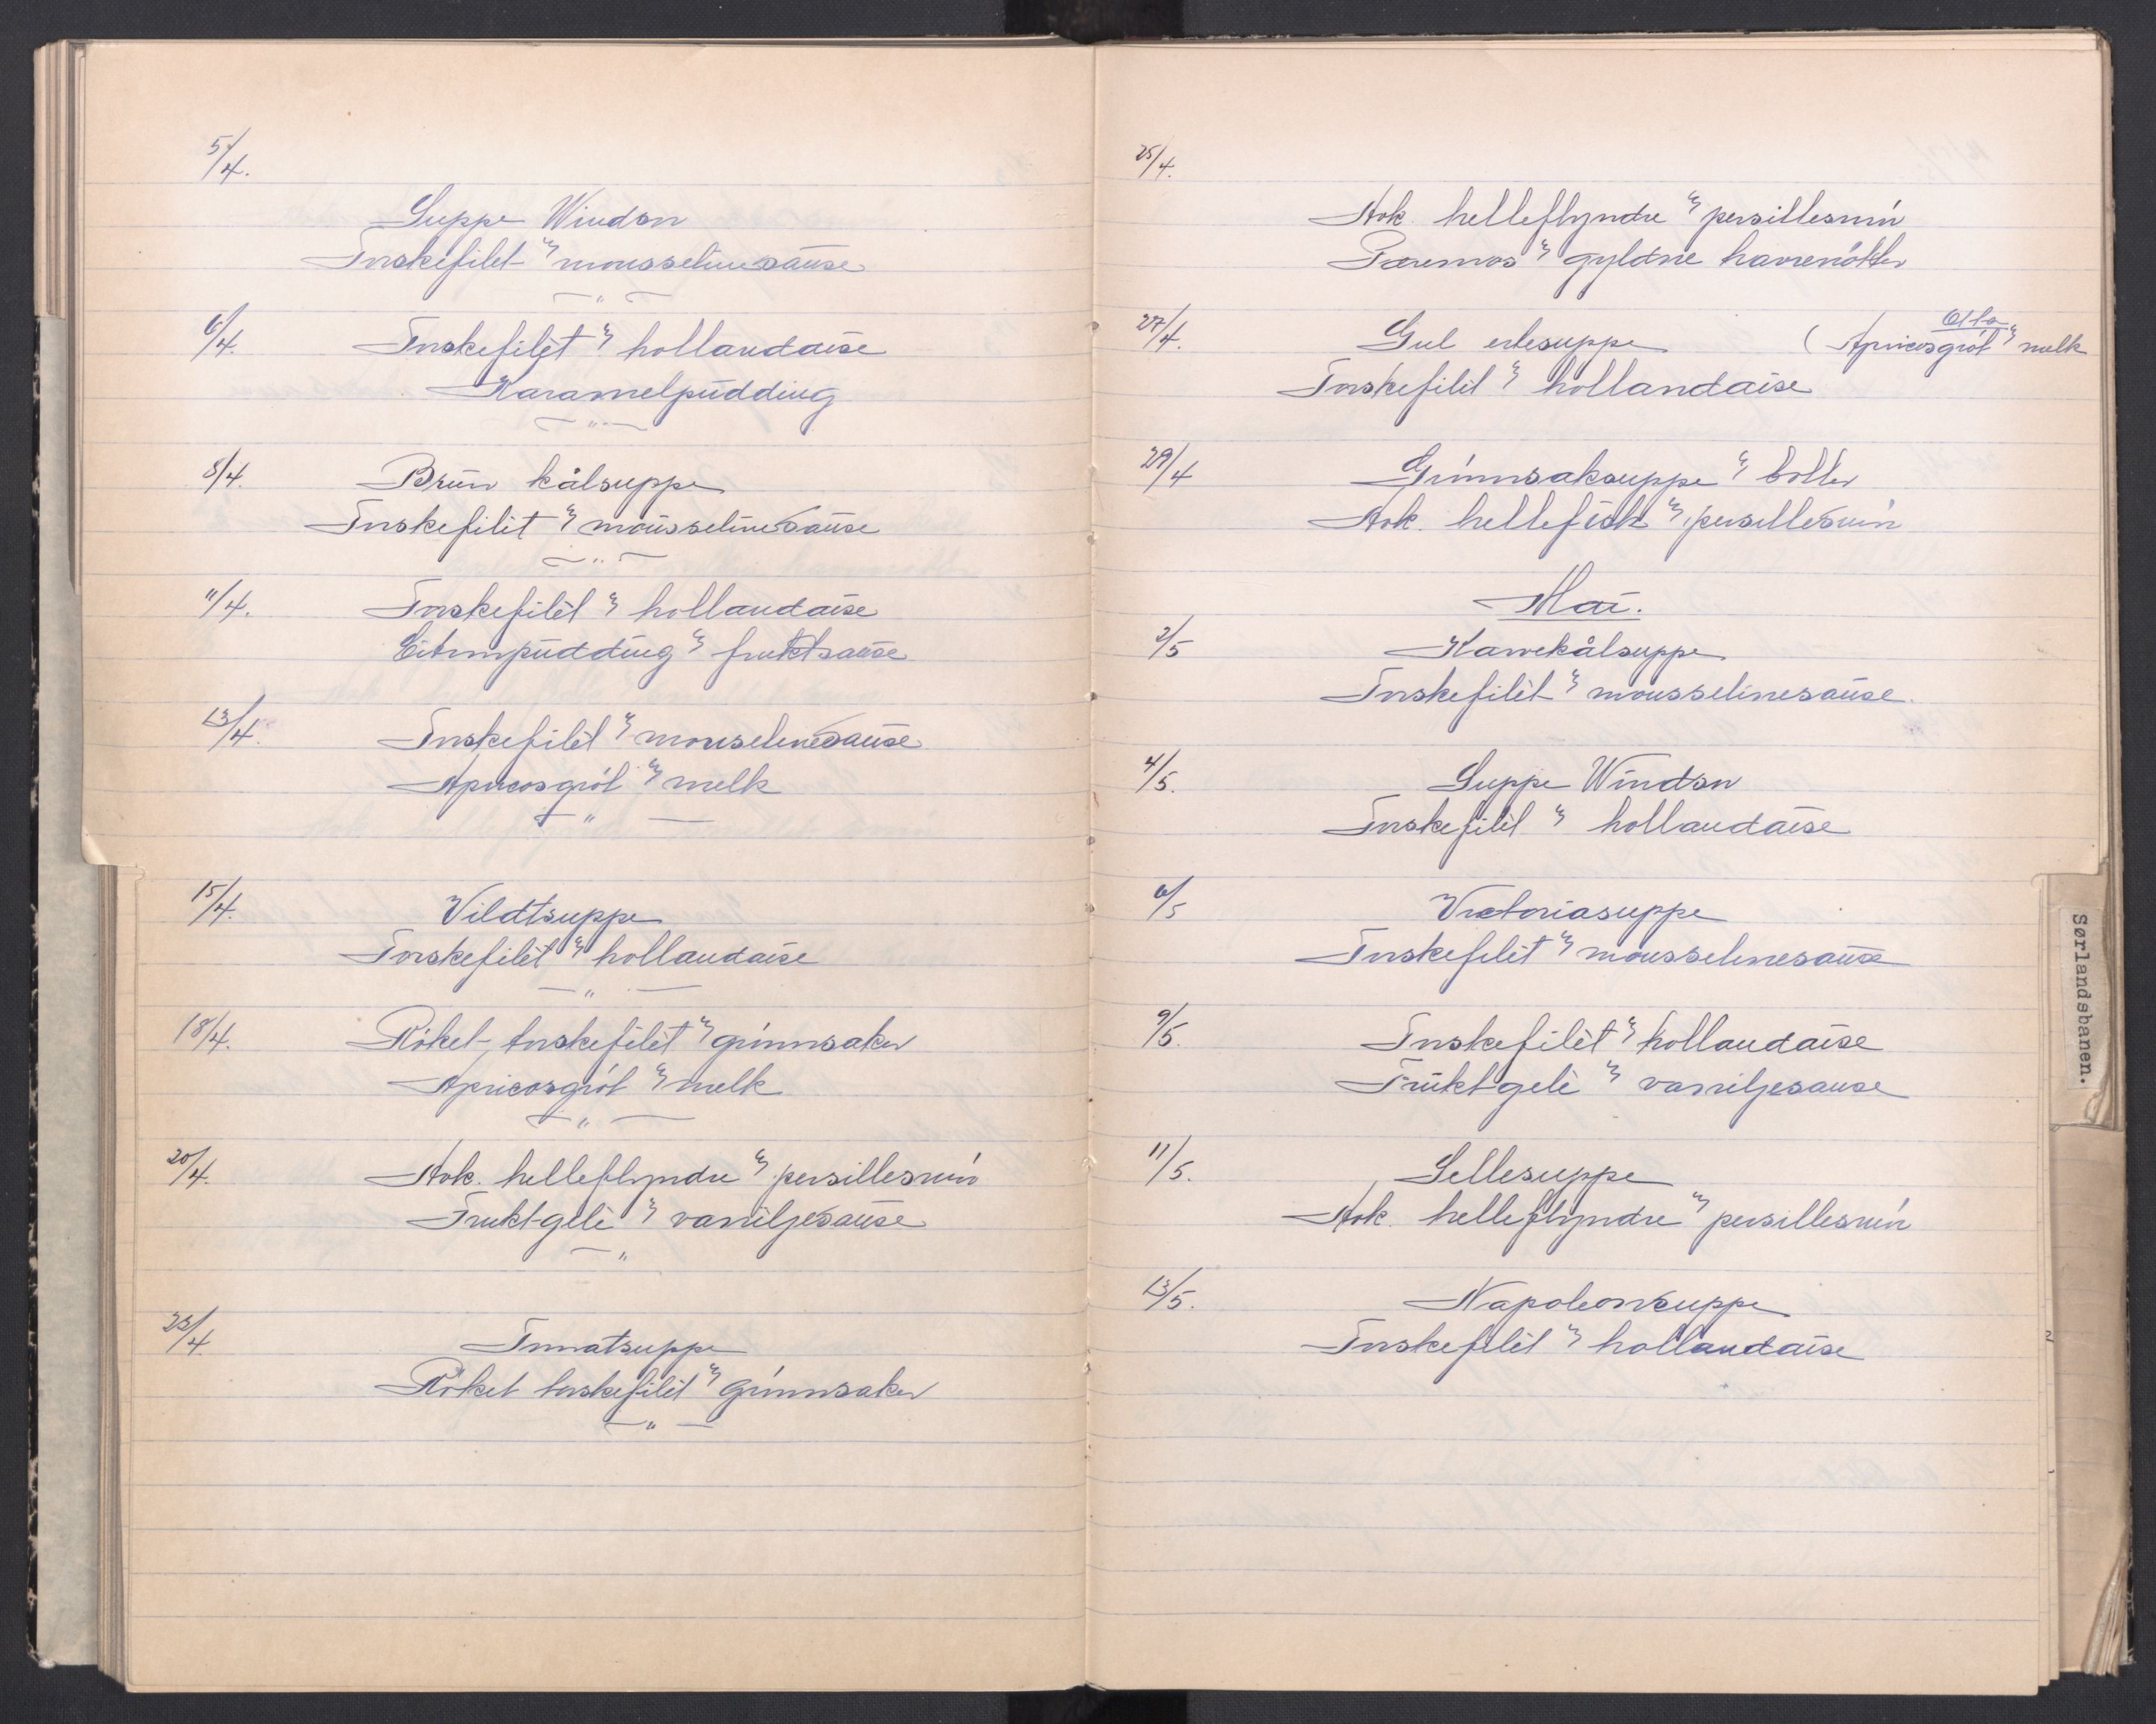 5/4.
Suppe Windsor
Torskefilet m/ mousselinesause
6/4.
Torskefilet m/ hollandaise
Karamelpudding
8/4.
Brun kålsuppe
Torskefilet m/ mousselinesause
11/4.
Torskefilet m/ hollandaise
Citronpudding m/ fruktsause
13/4.
Torskefilet m/ mouselinesause
Apricosgrøt m/ melk
15/4.
Vildtsuppe
Torskefilet m/ hollandaise
18/4.
Røket torskefilet m/ grønnsaker
Apricosgrøt m/ melk
20/4.
Kok. helleflyndre m/ persillesmør
Frukt-gelè m/ vaniljesause
/4.
Tomatsuppe
Røket torskefilet m/ grønnsaker
25/4.
Kok. helleflyndre m/ persillesmør
Pæremos m/ gyldne havrenøtter
27/4.
Gul ertesuppe
Otta
(Apricosgrøt m/ melk
Torskefilet m/ hollandaise
29/4
Grønnsaksuppe m/ boller
Kok. hellefisk m/ persillesmør
Mai.
2/5
Karvekålsuppe
Torskefilèt m/ mousselinesause.
4/5.
Suppe Windsor
Torskefilèt m/ hollandaise
6/5
Victoriasuppe
Torskefilèt m/ mousselinesause
9/5.
Torskefilèt m/ hollandaise
Frukt-gelè m/ vaniljesause
11/5.
Sellesuppe
Kok. helleflyndre m/ persillesmør
13/5.
Napoleonsuppe
Torskefilèt m/ hollandaise
Sørlandsbanen.